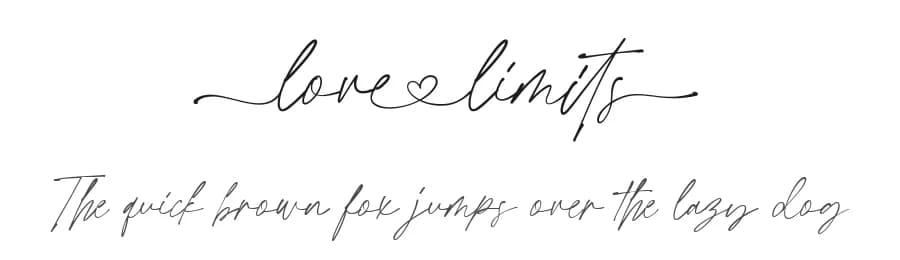 love limits
The quick brown fox jumps over the lazy dog